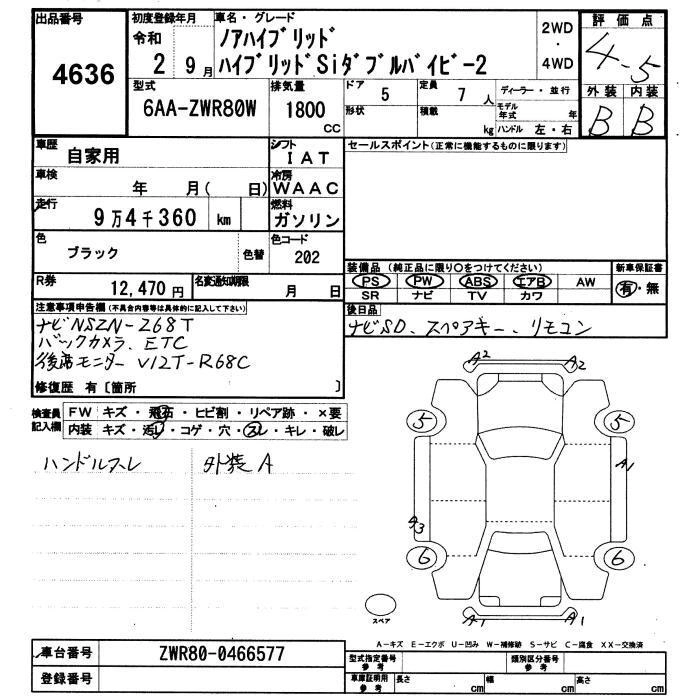 出品番号 4636
初度登録年月 令和 2 9月
車名・グレード
ノアハイブリッド
ハイブリッドSiダブルバイビー2
2WD
・
4WD
評価点 4.5
外装 内装
B B
型式 6AA-ZWR80W
排気量 1800 CC
ドア 5
定員 7 人
ディーラー・並行
形状
積載 kg
モデル年式 年
ハンドル 左・右
車歴 自家用
シフト IAT
セールスポイント(正常に機能するものに限ります)
車検 年 月( 日)
冷房 WAAC
走行 9万4千360 km
燃料 ガソリン
色 ブラック 色替
色コード 202
装備品 (純正品に限り○をつけてください)
PS PW ABS エアB AW
SR ナビ TV カワ
新車保証書
有・無
R券 12,470円
名変通知期限 月 日
後日品
ナビSD、スペアキー、リモコン
注意事項申告欄(不具合内容等は具体的に記入して下さい)
ナビNSZN-Z68T
バックカメラ、ETC
後席モニター V12T-R68C
修復歴 有〔箇所 〕
検査員記入欄
FW キズ・飛石・ヒビ割・リペア跡・×要
内装 キズ・汚レ・コゲ・穴・スレ・キレ・破レ
ハンドルスレ 外装A
A2 A2
5 5
A1
A3
6 6
A1 A1
スペア
A-キズ E-エクボ U-凹み W-補修跡 S-サビ C-腐食 XX-交換済
車台番号 ZWR80-0466577
登録番号
型式指定番号 参考
類別区分番号 参考
車庫証明用 参考
長さ cm
幅 cm
高さ cm